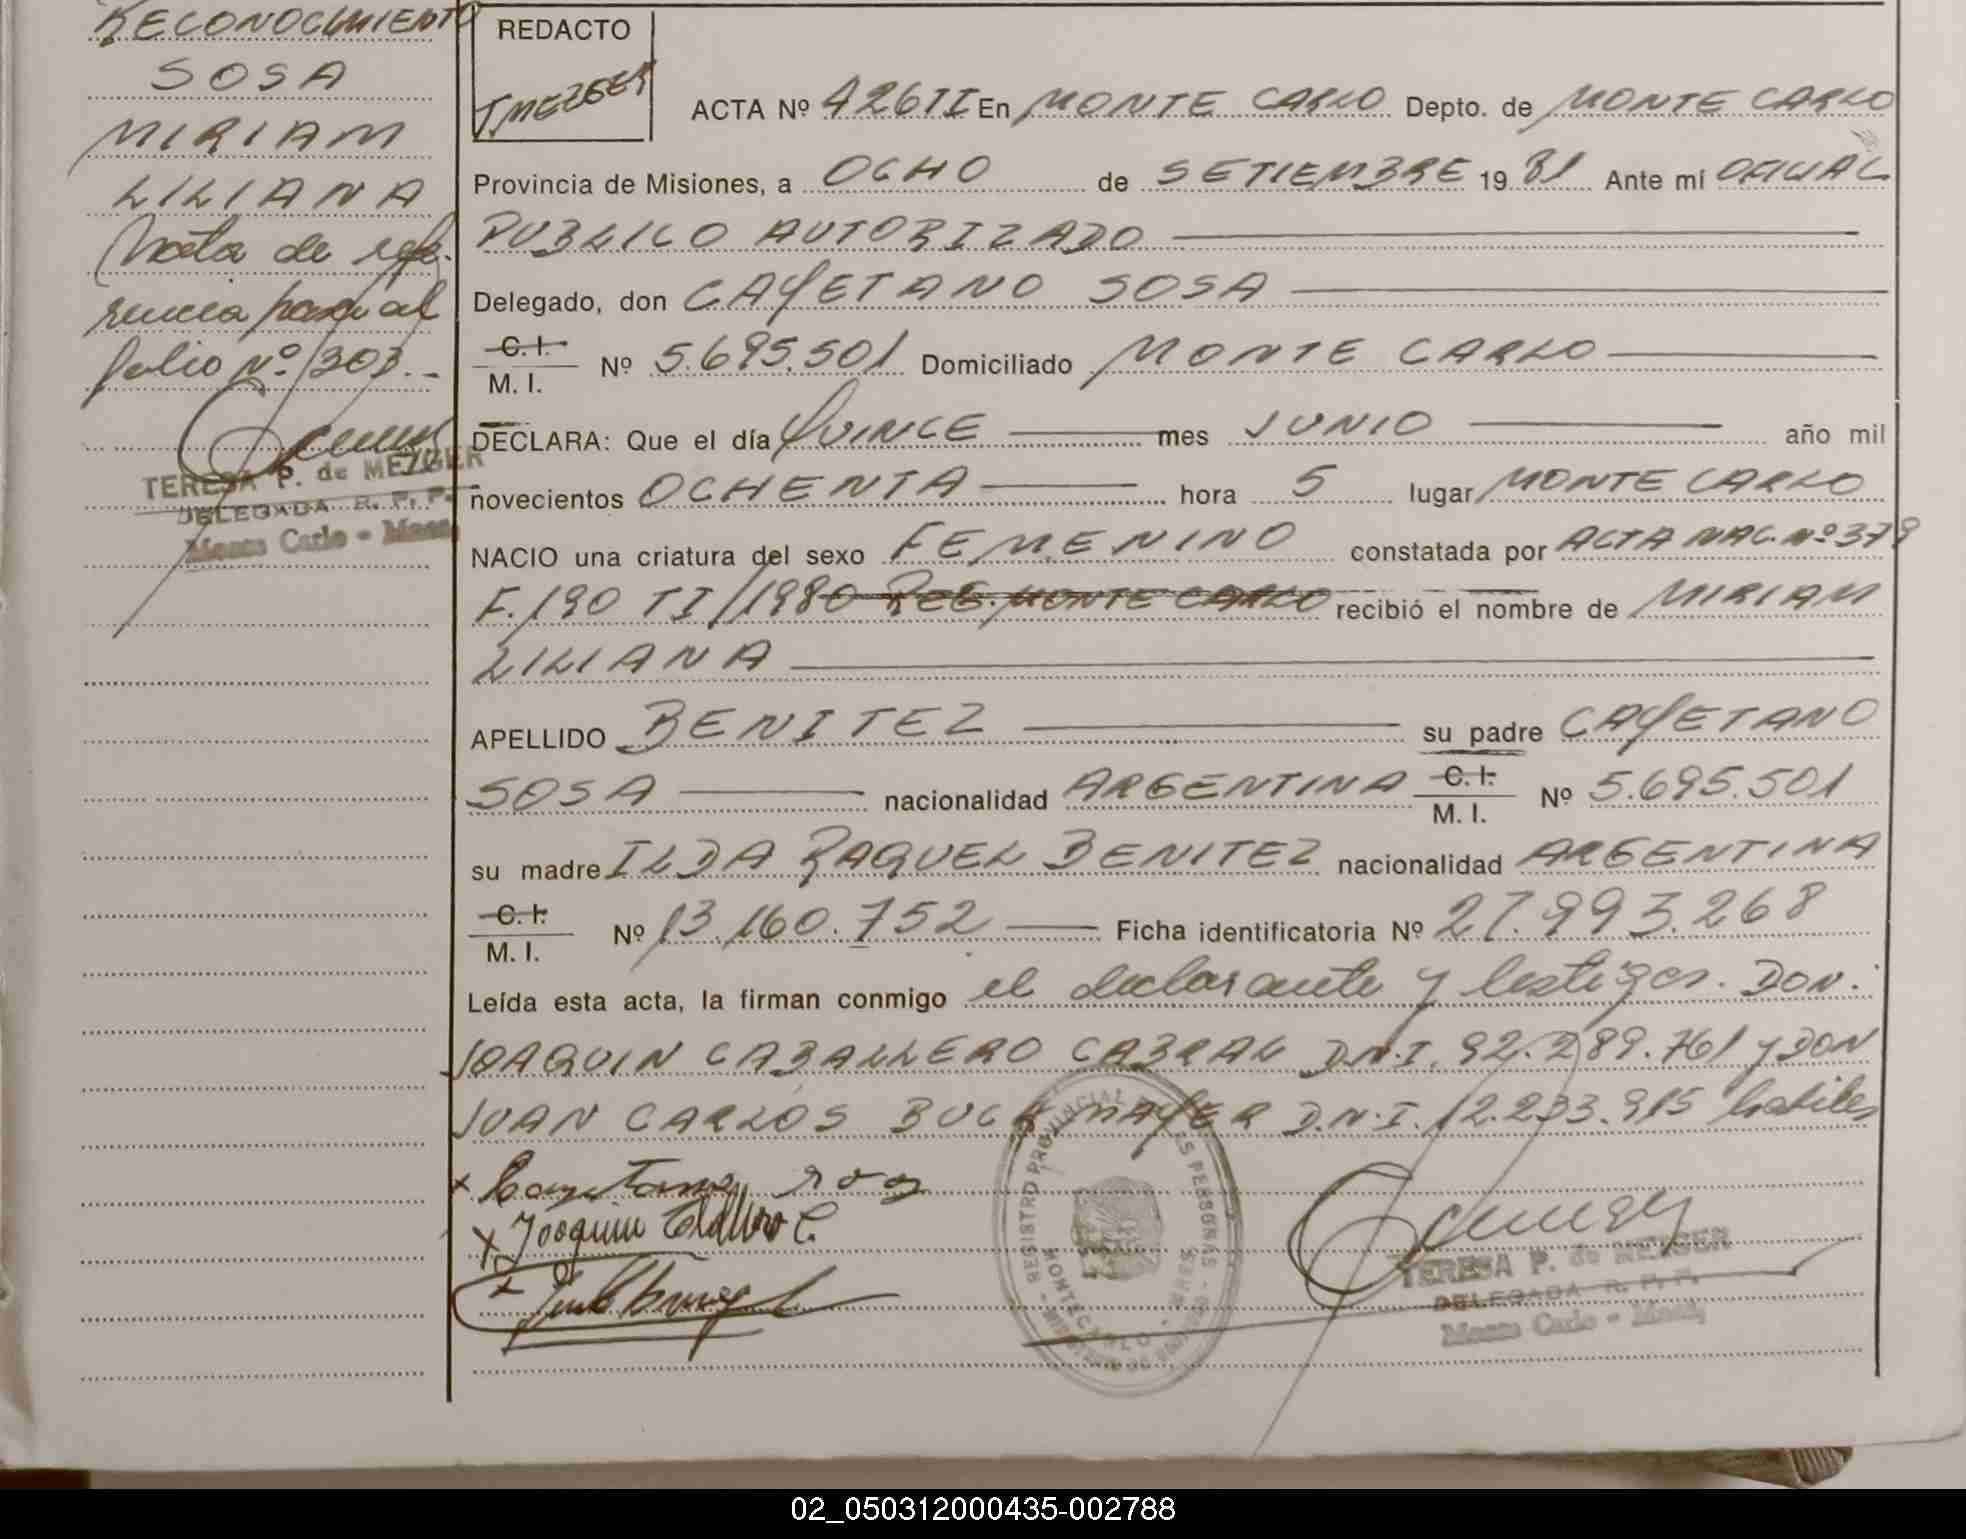 RECONOCIMIENTO
SOSA
MIRIAM
LILIANA
Nota de refe-
rencia pasa al
folio Nº 303.-
TERESA P. de MEZGER
DELEGADA R. P. P.
Monte Carlo - Mnes.
REDACTO
T. MEZGER
ACTA Nº 426 TI En MONTE CARLO Depto. de MONTE CARLO
Provincia de Misiones, a OCHO de SETIEMBRE 1981 Ante mí OFICIAL
PUBLICO AUTORIZADO
Delegado, don CAYETANO SOSA
C. I. M. I. Nº 5.695.501 Domiciliado MONTE CARLO
DECLARA: Que el día QUINCE mes JUNIO año mil
novecientos OCHENTA hora 5 lugar MONTE CARLO
NACIO una criatura del sexo FEMENINO constatada por ACTA NAC. Nº 379
F. 190 TI/1980 REG. MONTE CARLO recibió el nombre de MIRIAM
LILIANA
APELLIDO BENITEZ su padre CAYETANO
SOSA nacionalidad ARGENTINA C. I. M. I. Nº 5.695.501
su madre ILDA RAQUEL BENITEZ nacionalidad ARGENTINA
C. I. M. I. Nº 13.160.752 Ficha identificatoria Nº 27.993.268
Leída esta acta, la firman conmigo el declarante y testigos. DON:
JOAQUIN CABALLERO CABRAL D.N.I. 92.289.761 y DON
JUAN CARLOS BUCKMAYER D.N.I. 12.233.915 habiles
x Cayetano sosa
x Joaquin C.
x
REGISTRO PROVINCIAL DE LAS PERSONAS
MONTECARLO
TERESA P. de MEZGER
DELEGADA R. P. P.
Monte Carlo - Mnes.
02_050312000435-002788